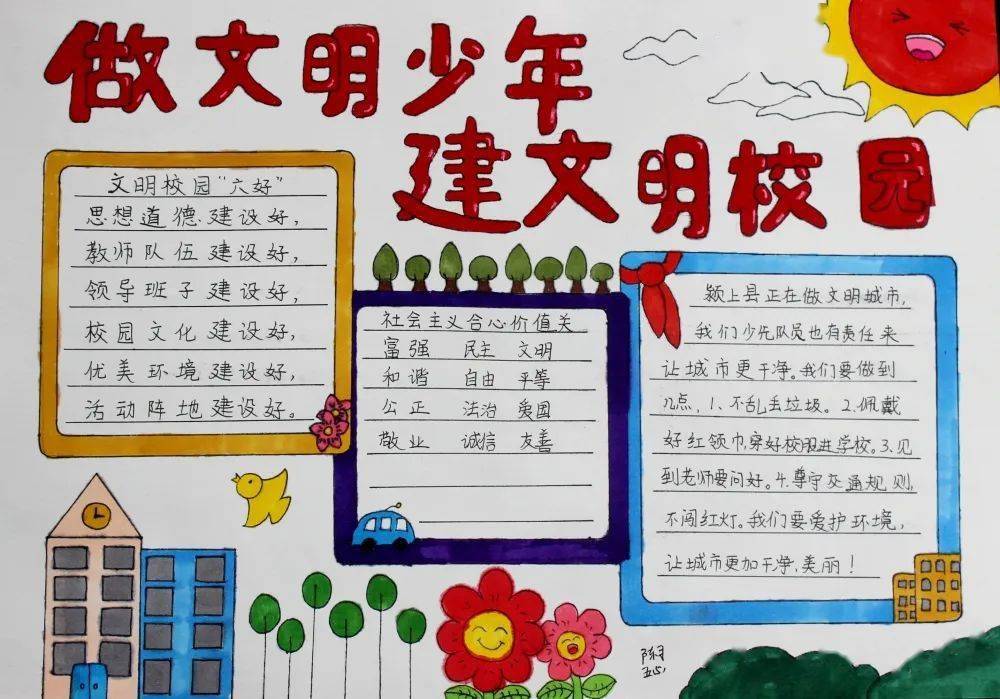 做文明少年
建文明校园
文明校园“六好”
思想道德建设好,
教师队伍建设好,
领导班子建设好,
校园文化建设好,
优美环境建设好,
活动阵地建设好。
社会主义合心价值关
富强 民主 文明
和谐 自由 平等
公正 法治 爱国
敬业 诚信 友善
颍上县正在做文明城市,
我们少先队员也有责任来
让城市更干净。我们要做到
几点,1、不乱丢垃圾。2.佩戴
好红领巾,穿好校服进学校。3.见
到老师要问好。4.尊守交通规则,
不闯红灯。我们要爱护环境,
让城市更加干净,美丽!